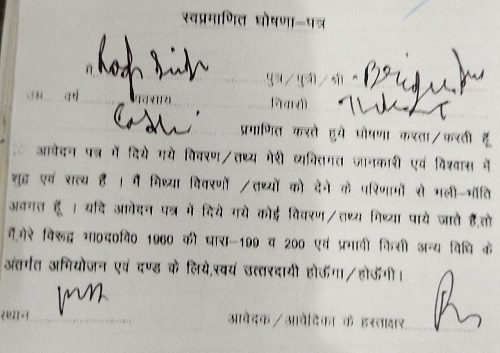 स्वप्रमाणित घोषणा-पत्र
मैं पुत्र/पुत्री/श्री
उम्र वर्ष व्यवसाय निवासी
प्रमाणित करते हुये घोषणा करता/करती हूँ
आवेदन पत्र में दिये गये विवरण/तथ्य मेरी व्यक्तिगत जानकारी एवं विश्वास में
शुद्ध एवं सत्य हैं । मैं मिथ्या विवरणों /तथ्यों को देने के परिणामों से भली-भाँति
अवगत हूँ । यदि आवेदन पत्र में दिये गये कोई विवरण/तथ्य मिथ्या पाये जाते हैं,तो
मैं,मेरे विरूद्ध भा०द०वि० 1960 की धारा-199 व 200 एवं प्रभावी किसी अन्य विधि के
अंतर्गत अभियोजन एवं दण्ड के लिये,स्वयं उत्तरदायी होऊँगा/होऊँगी।
स्थान आवेदक/आवेदिका के हस्ताक्षर